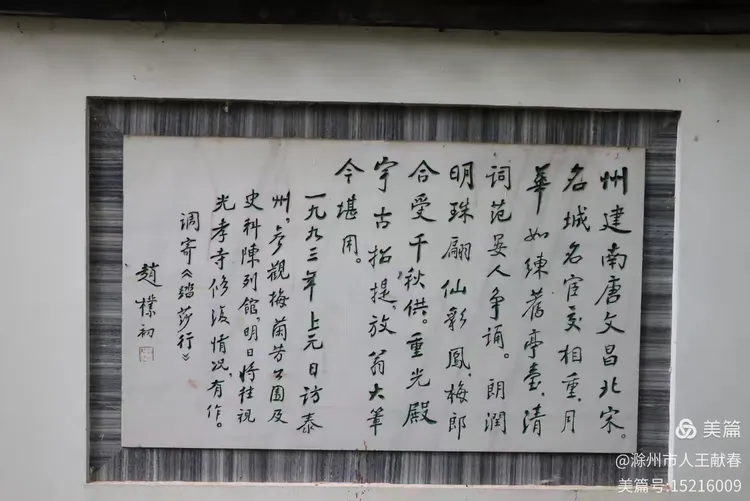 州建南唐文昌北宋。
名城名宦交相重。月
华如练旧亭臺，清
词范晏人争诵。朗润
明珠翩仙彩凤，梅郎
合受千秋供。重光殿
宇古招提，放翁大筆
今堪用。
一九九三年上元日访泰
州，参觀梅蘭芳公園及
史料陳列館，明日将往视
光孝寺修復情况，有作。
调寄《踏莎行》
趙樸初
美篇
@滁州市人王献春
美篇号:15216009